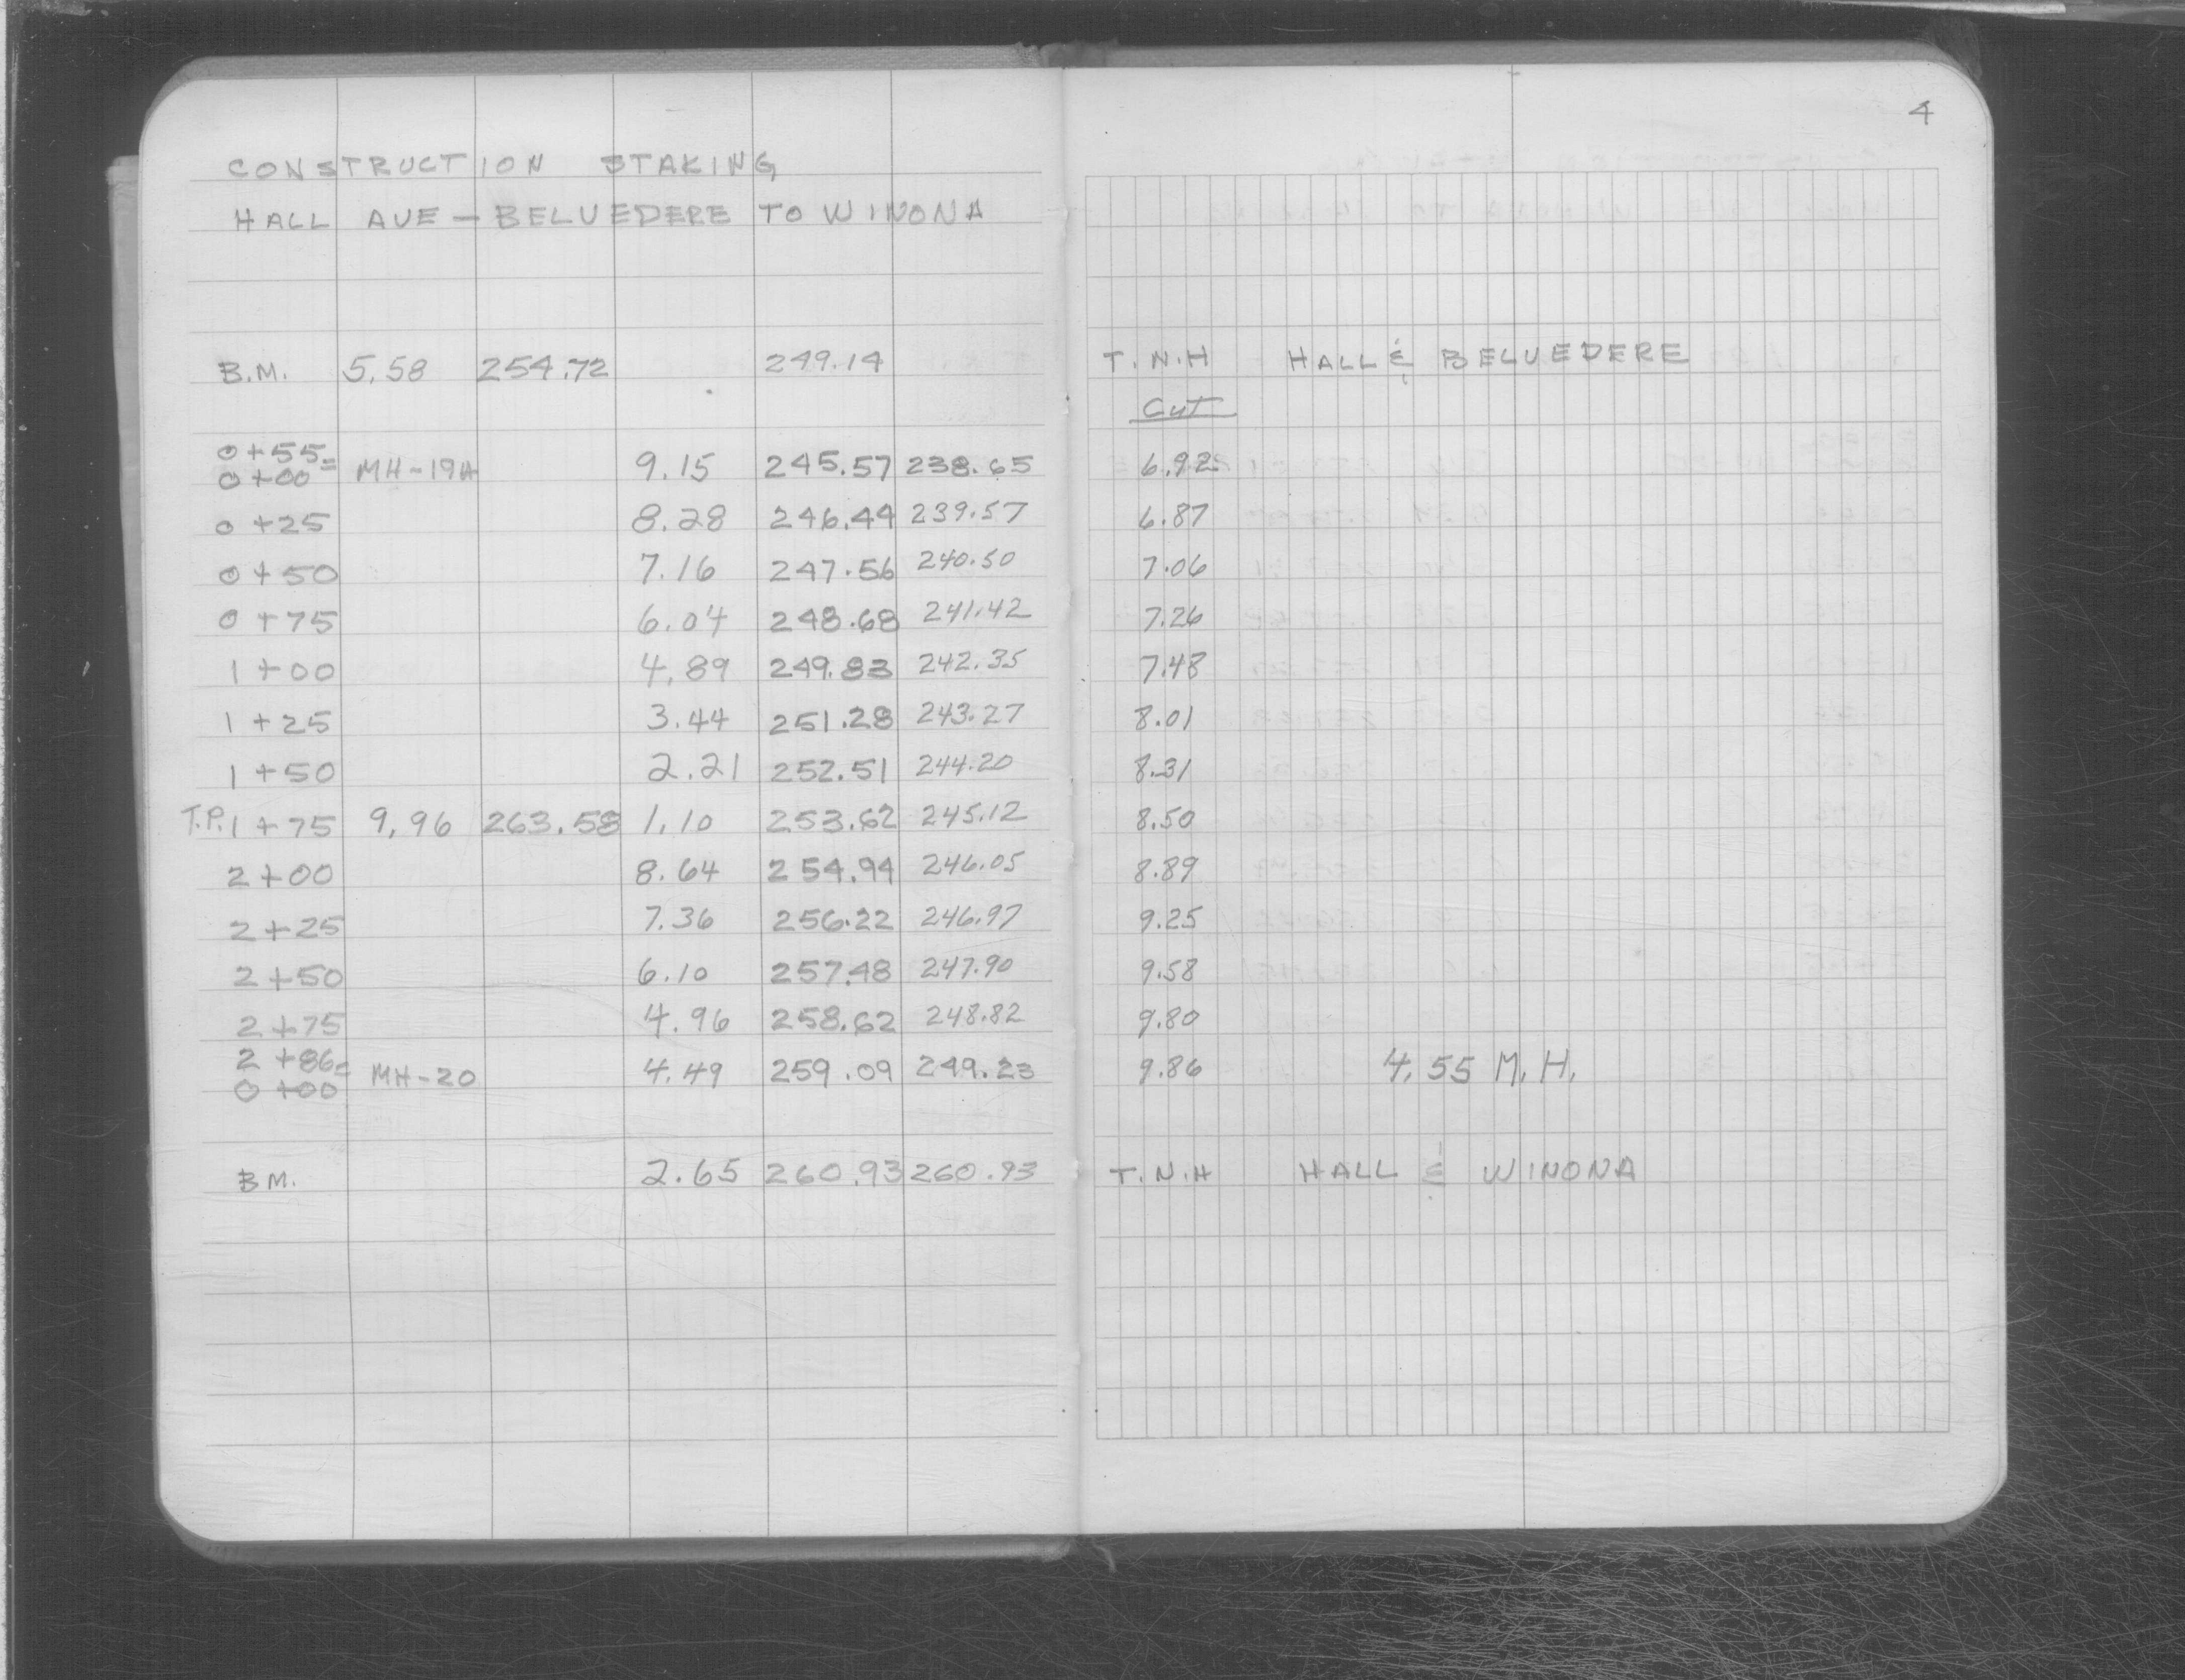 4
CONSTRUCTION STAKING
HALL AVE - BELVEDERE TO WINONA
B.M. 5.58 254.72 249.14 T.N.H HALL & BELVEDERE
Cut
0+55=
0+00 MH-19A 9.15 245.57 238.65 6.92
0+25 8.28 246.44 239.57 6.87
0+50 7.16 247.56 240.50 7.06
0+75 6.04 248.68 241.42 7.26
1+00 4.89 249.83 242.35 7.48
1+25 3.44 251.28 243.27 8.01
1+50 2.21 252.51 244.20 8.31
T.P. 1+75 9.96 263.58 1.10 253.62 245.12 8.50
2+00 8.64 254.94 246.05 8.89
2+25 7.36 256.22 246.97 9.25
2+50 6.10 257.48 247.90 9.58
2+75 4.96 258.62 248.82 9.80
2+86=
0+00 MH-20 4.49 259.09 249.23 9.86 4.55 M.H.
BM. 2.65 260.93 260.93 T.N.H HALL & WINONA